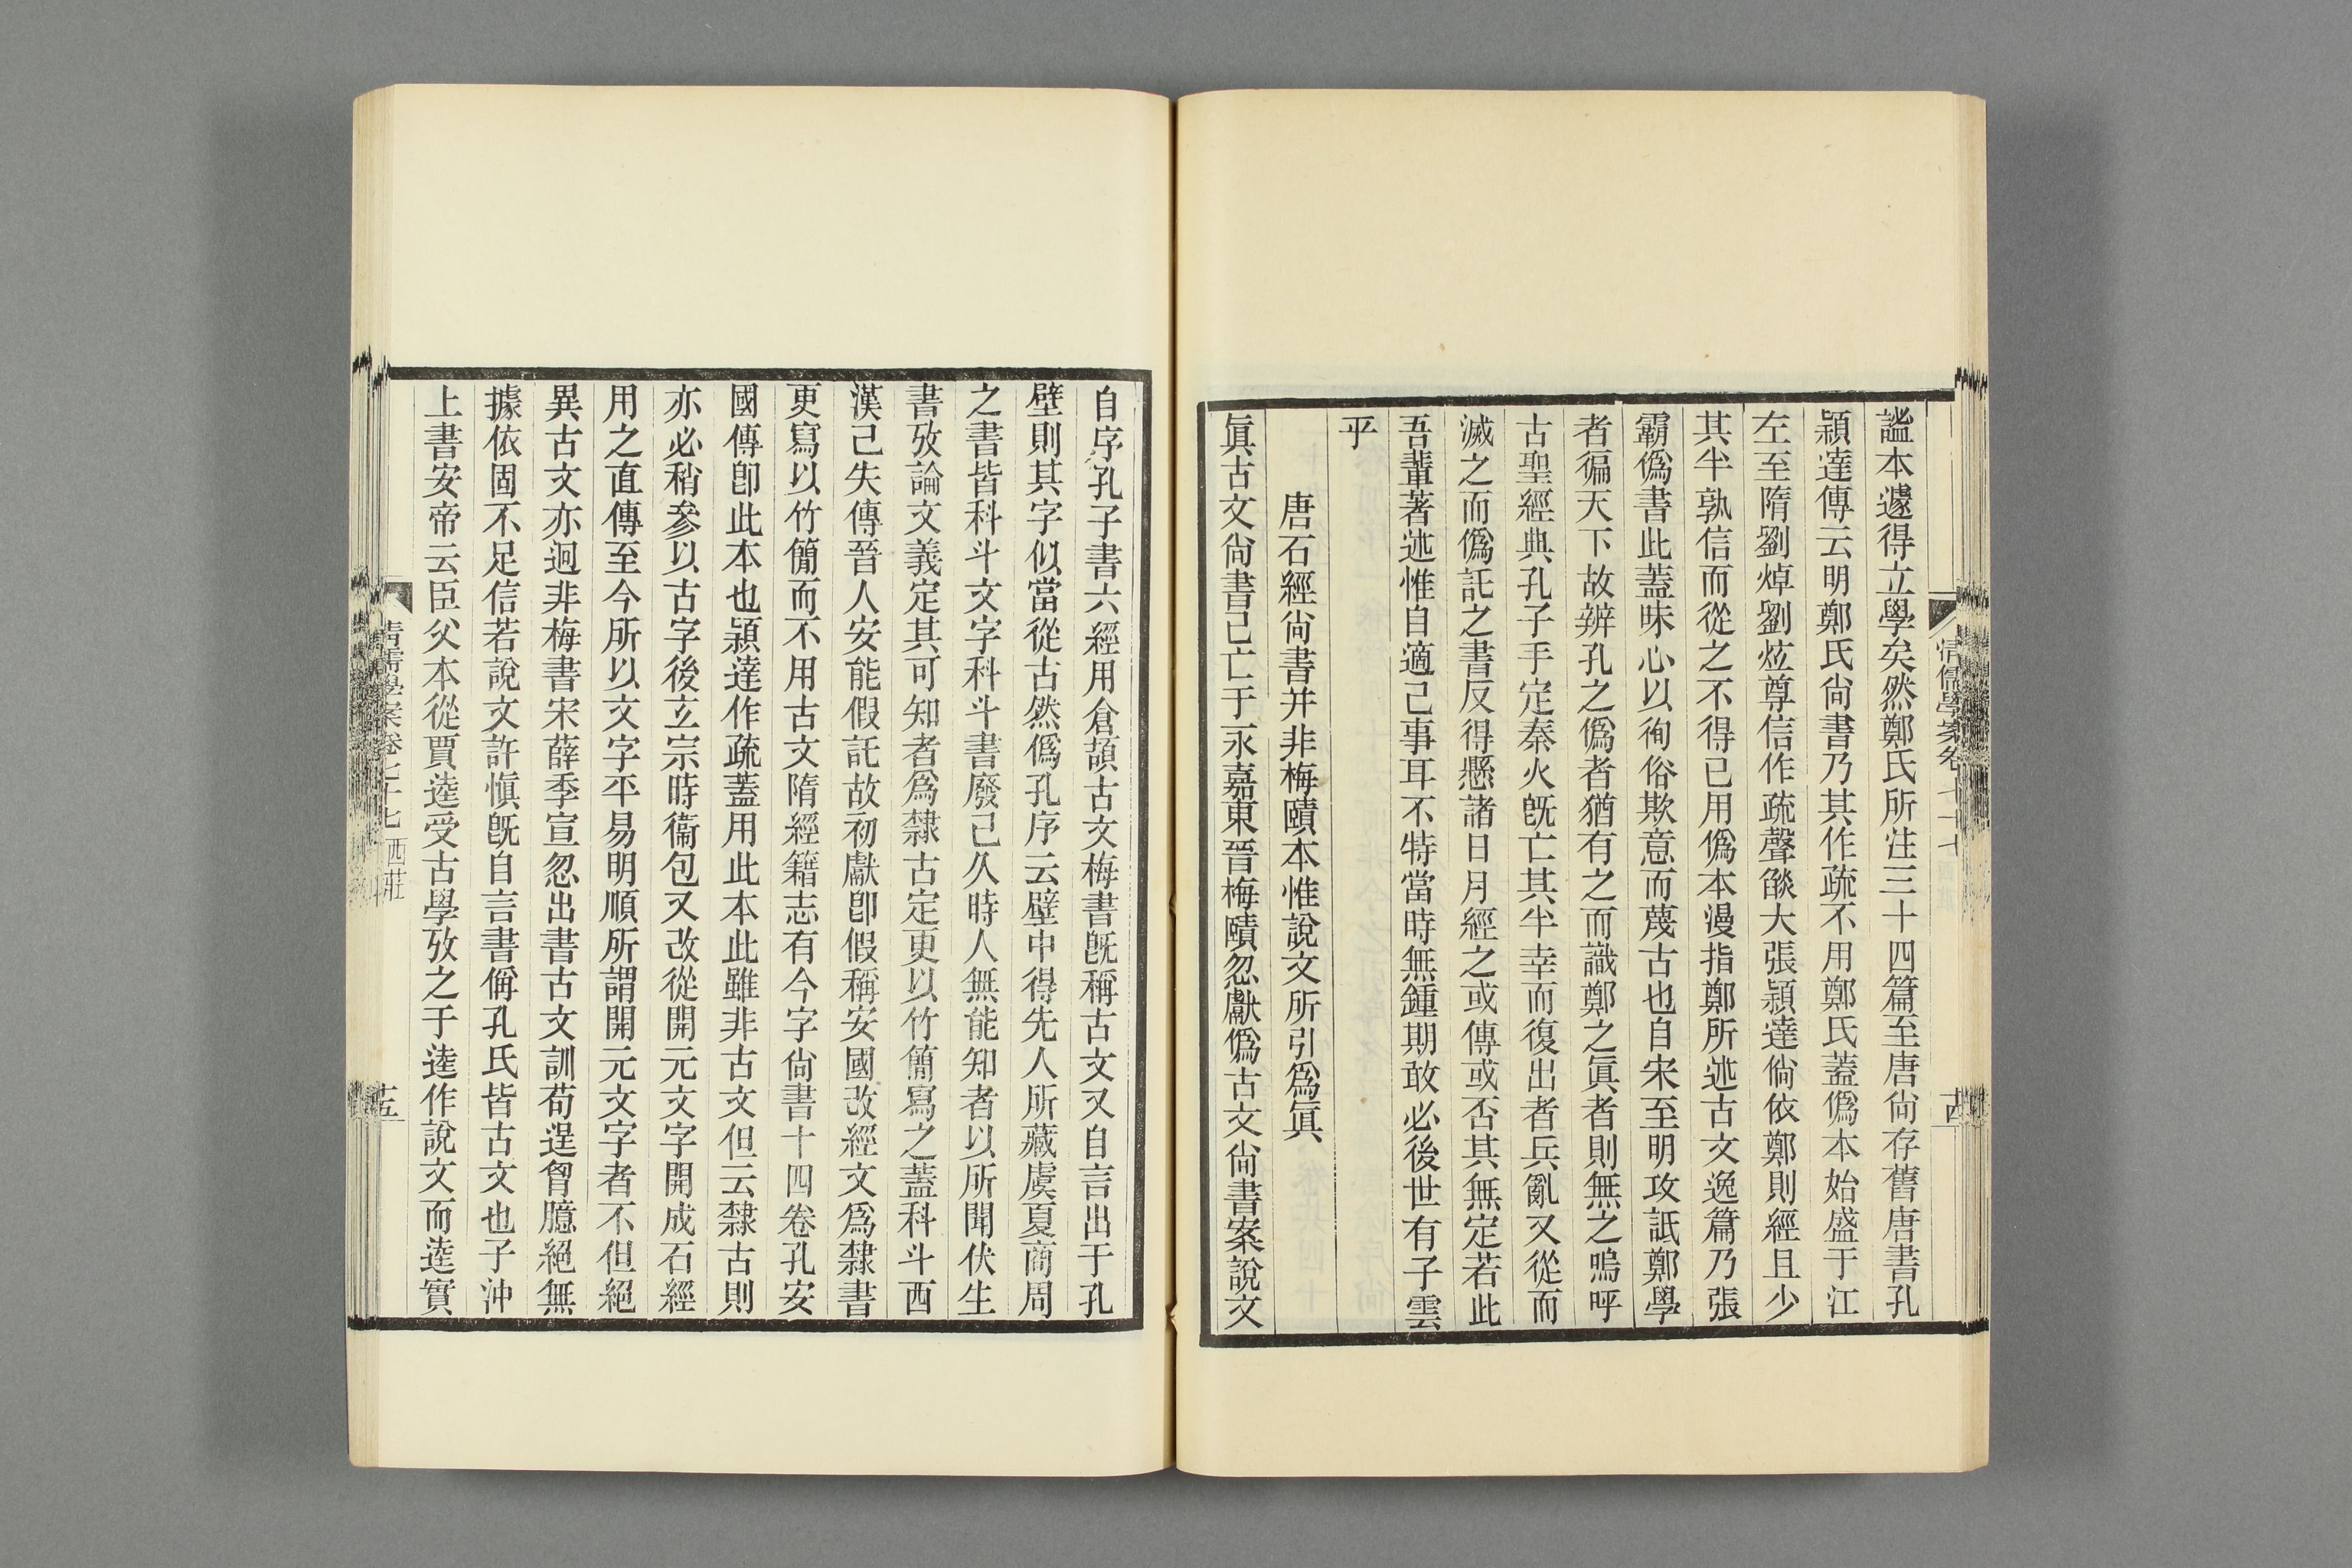 清儒學案卷七十七
謐本遽得立學矣然鄭氏所注三十四篇至唐尙存舊唐書孔
穎達傳云明鄭氏尙書乃其作疏不用鄭氏蓋僞本始盛于江
左至隋劉焯劉炫尊信作疏聲燄大張穎達倘依鄭則經且少
其半孰信而從之不得已用僞本漫指鄭所述古文逸篇乃張
霸僞書此蓋昧心以徇俗欺意而蔑古也自宋至明攻詆鄭學
者徧天下故辨孔之僞者猶有之而識鄭之眞者則無之嗚呼
古聖經典孔子手定秦火旣亡其半幸而復出者兵亂又從而
滅之而僞託之書反得懸諸日月經之或傳或否其無定若此
吾輩著述惟自適己事耳不特當時無鍾期敢必後世有子雲
乎
唐石經尙書并非梅賾本惟說文所引爲眞
眞古文尙書已亡于永嘉東晉梅賾忽獻僞古文尙書案說文
自序孔子書六經用倉頡古文梅書旣稱古文又自言出于孔
壁則其字似當從古然僞孔序云壁中得先人所藏虞夏商周
之書皆科斗文字科斗書廢已久時人無能知者以所聞伏生
書攷論文義定其可知者爲隸古定更以竹簡寫之蓋科斗西
漢已失傳晉人安能假託故初獻卽假稱安國改經文爲隸書
更寫以竹簡而不用古文隋經籍志有今字尙書十四卷孔安
國傳卽此本也穎達作疏蓋用此本此雖非古文但云隸古則
亦必稍參以古字後玄宗時衞包又改從開元文字開成石經
用之直傳至今所以文字平易明順所謂開元文字者不但絕
異古文亦迥非梅書宋薛季宣忽出書古文訓苟逞胷臆絕無
據依固不足信若說文許愼旣自言書偁孔氏皆古文也子沖
上書安帝云臣父本從賈逵受古學攷之于逵作說文而逵實
清儒學案卷七十七 西莊
十五